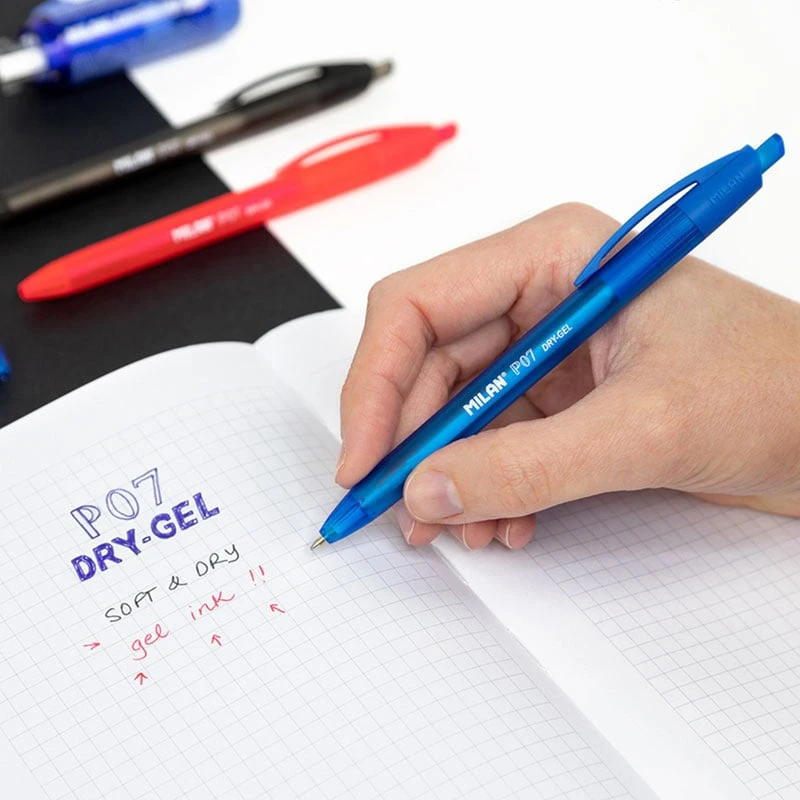 MILAN
MILAN P07
MILAN
MILAN® P07 DRY-GEL
P07
DRY-GEL
SOFT & DRY
> gel ink !!